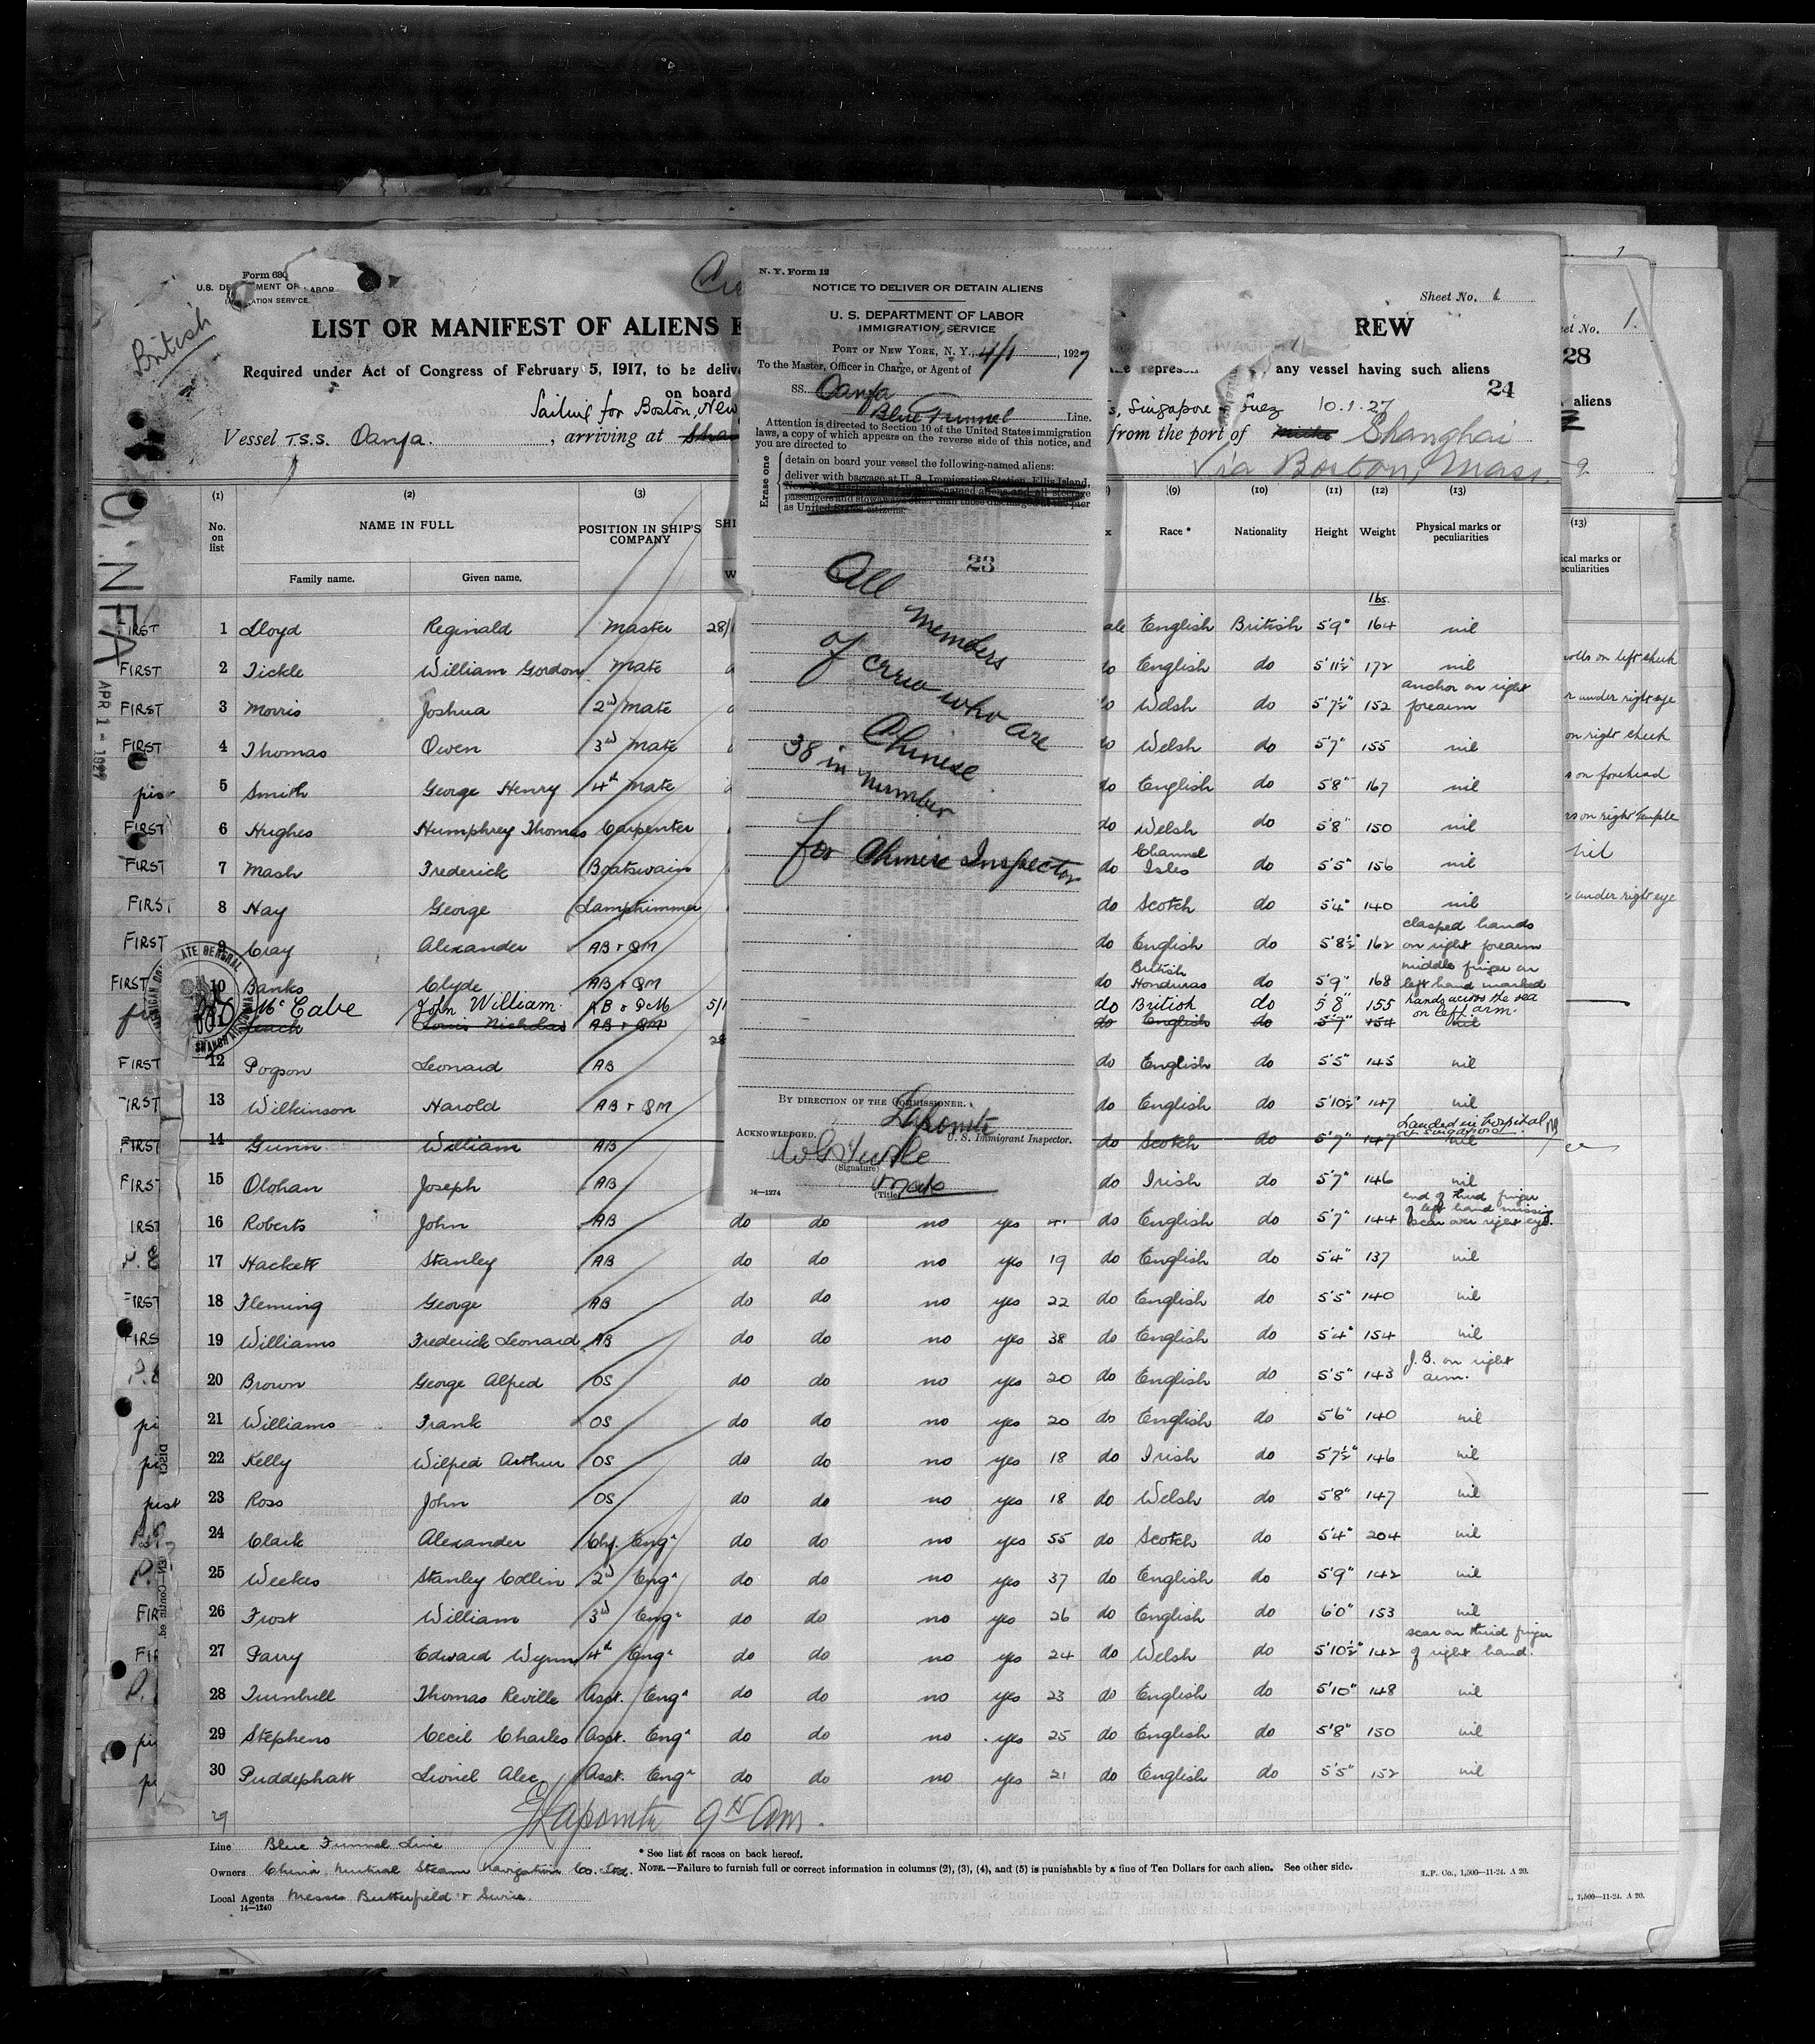 Form 680
U.S. DEPARTMENT OF LABOR
IMMIGRATION SERVICE
British
Sheet No. 1
LIST OR MANIFEST OF ALIENS E
REW
Required under Act of Congress of February 5, 1917, to be delive
the represen any vessel having such aliens
on board
24
Sailing for Boston, New
Singapore Suez 10.1.27
Vessel T.S.S. Oanfa. , arriving at
from the port of Shanghai
Via Boston, Mass.
APR 1 - 1927
N. Y. Form 12
NOTICE TO DELIVER OR DETAIN ALIENS
U. S. DEPARTMENT OF LABOR
IMMIGRATION SERVICE
PORT OF NEW YORK, N. Y., 4/1, 1927
To the Master, Officer in Charge, or Agent of
SS. Oanfa
Blue Funnel Line.
Attention is directed to Section 10 of the United States immigration
laws, a copy of which appears on the reverse side of this notice, and
you are directed to
Erase one
detain on board your vessel the following-named aliens:
deliver with baggage at U. S. Immigration Station, Ellis Island,
as United States citizens.
23
All
members
of crew who are
Chinese
38 in number
for Chinese Inspector
BY DIRECTION OF THE COMMISSIONER.
Laponte
ACKNOWLEDGED. U. S. Immigrant Inspector.
(Signature)
Mate
(Title)
14—1274
(1) (2) (3) (9) (10) (11) (12) (13)
No. on list NAME IN FULL POSITION IN SHIP'S COMPANY Race * Nationality Height Weight Physical marks or peculiarities
Family name. Given name.
lbs.
FIRST 1 Lloyd Reginald Master 28/1 English British 5'9" 164 nil
FIRST 2 Tickle William Gordon Mate do English do 5'11½" 172 nil
FIRST 3 Morris Joshua 2nd Mate do Welsh do 5'7½" 152 anchor on right forearm
FIRST 4 Thomas Owen 3rd Mate do Welsh do 5'7" 155 nil
5 Smith George Henry 4th Mate do English do 5'8" 167 nil
FIRST 6 Hughes Humphrey Thomas Carpenter do Welsh do 5'8" 150 nil
FIRST 7 Mash Frederick Boatswain do Channel Isles do 5'5" 156 nil
FIRST 8 Hay George Lamptrimmer do Scotch do 5'4" 140 nil
FIRST 9 Cray Alexander AB + QM do English do 5'8½" 162 clasped hands on right forearm
FIRST 10 Banks Clyde AB + QM do British Honduras do 5'9" 168 middle finger on left hand marked
McCabe John William AB + QM 5/1 do British do 5'8" 155 hands across the sea on left arm.
Leach Louis Nicholas AB + QM do English do 5'7" 154 nil
FIRST 12 Pogson Leonard AB do English do 5'5" 145 nil
FIRST 13 Wilkinson Harold AB + QM do English do 5'10½" 147 nil
FIRST 14 Gunn William AB do Scotch do 5'7" 147 nil Landed in hospital at Singapore
FIRST 15 Olohan Joseph AB do Irish do 5'7" 146 nil
FIRST 16 Roberts John AB do do no yes do English do 5'7" 144 end of third finger of left hand missing scar over right eye.
P.E 17 Hackett Stanley AB do do no yes 19 do English do 5'4" 137 nil
FIRST 18 Fleming George AB do do no yes 22 do English do 5'5" 140 nil
FIRS 19 Williams Frederick Leonard AB do do no yes 38 do English do 5'4" 154 nil
20 Brown George Alfred OS do do no yes 20 do English do 5'5" 143 J.B. on right arm.
21 Williams Frank OS do do no yes 20 do English do 5'6" 140 nil
22 Kelly Wilfred Arthur OS do do no yes 18 do Irish do 5'7½" 146 nil
23 Ross John OS do do no yes 18 do Welsh do 5'8" 147 nil
24 Clark Alexander Chf. Engr do do no yes 55 do Scotch do 5'4" 204 nil
25 Weekes Stanley Collin 2nd Engr do do no yes 37 do English do 5'9" 142 nil
FIR 26 Frost William 3rd Engr do do no yes 26 do English do 6'0" 153 nil
27 Parry Edward Wynn 4th Engr do do no yes 24 do Welsh do 5'10½" 142 scar on third finger of right hand.
28 Turnbull Thomas Reville Asst. Engr do do no yes 23 do English do 5'10" 148 nil
29 Stephens Cecil Charles Asst. Engr do do no yes 25 do English do 5'8" 150 nil
30 Puddephatt Lionel Alec Asst. Engr do do no yes 21 do English do 5'5" 152 nil
29
Line Blue Funnel Line
* See list of races on back hereof.
Owners China Mutual Steam Navigation Co. Ltd.
NOTE.—Failure to furnish full or correct information in columns (2), (3), (4), and (5) is punishable by a fine of Ten Dollars for each alien. See other side.
L.P. Co., 1,500—11-24. A 20.
Local Agents Messrs Butterfield & Swire.
14—1240
et No. 1.
28
aliens
(13)
cal marks or
eculiarities
on left cheek
under right eye
on right cheek
on forehead
on right temple
nil
under right eye
, 1,500—11-24. A 20.